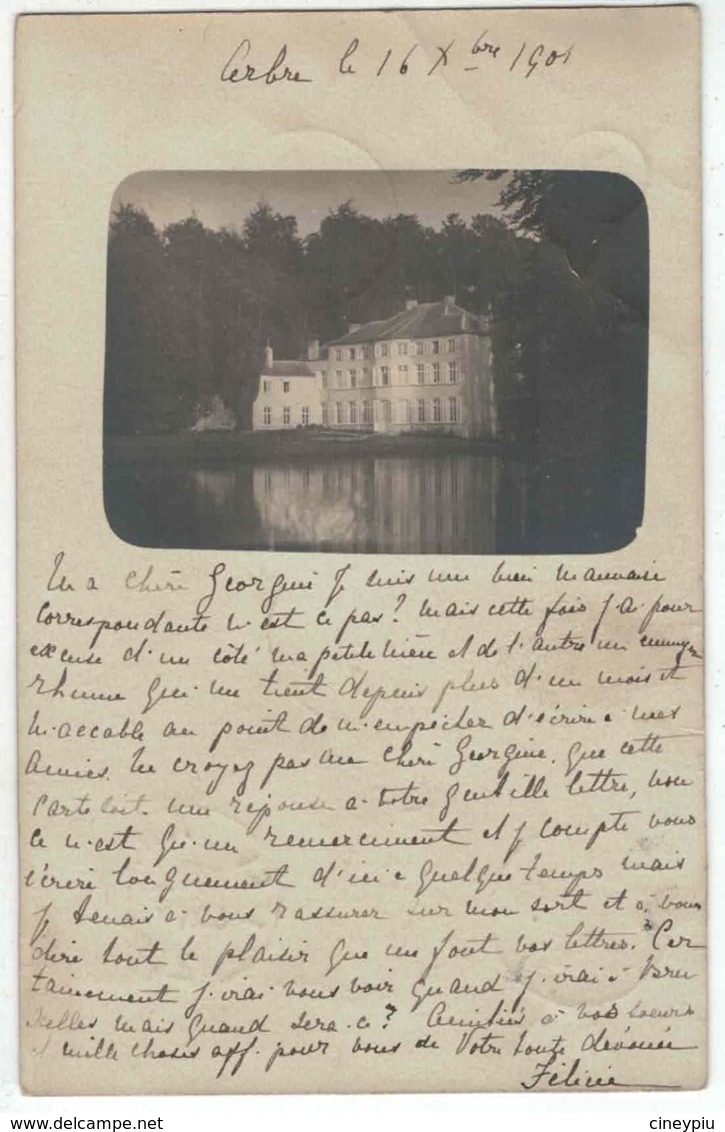 Cerbre le 16 Xbre 1901
Ma chéri Georgine je suis une bien mauvaise
correspondante n'est ce pas? mais cette fois j'ai pour
excuse d'un côté ma petite nièce et de l'autre un ennuyeux
rhume qui me tient depuis plus d'un mois et
m'accable au point de m'empêcher d'écrire à mes
amies. Ne croyez pas ma chéri Georgine, que cette
carte soit une réponse à votre gentille lettre, non
ce n'est qu'un remerciment et je compte vous
écrire longuement d'ici à quelque temps mais
je tenais à vous rassurer sur mon sort et à vous
dire tout le plaisir que me font vos lettres. Cer
tainement j'irai vous voir quand j'irai à Bru
xelles mais quand sera-ce? Amitiés à vos soeurs
et mille choses aff. pour vous de votre toute dévouée
Félicie
delcampe.net
cineypiu